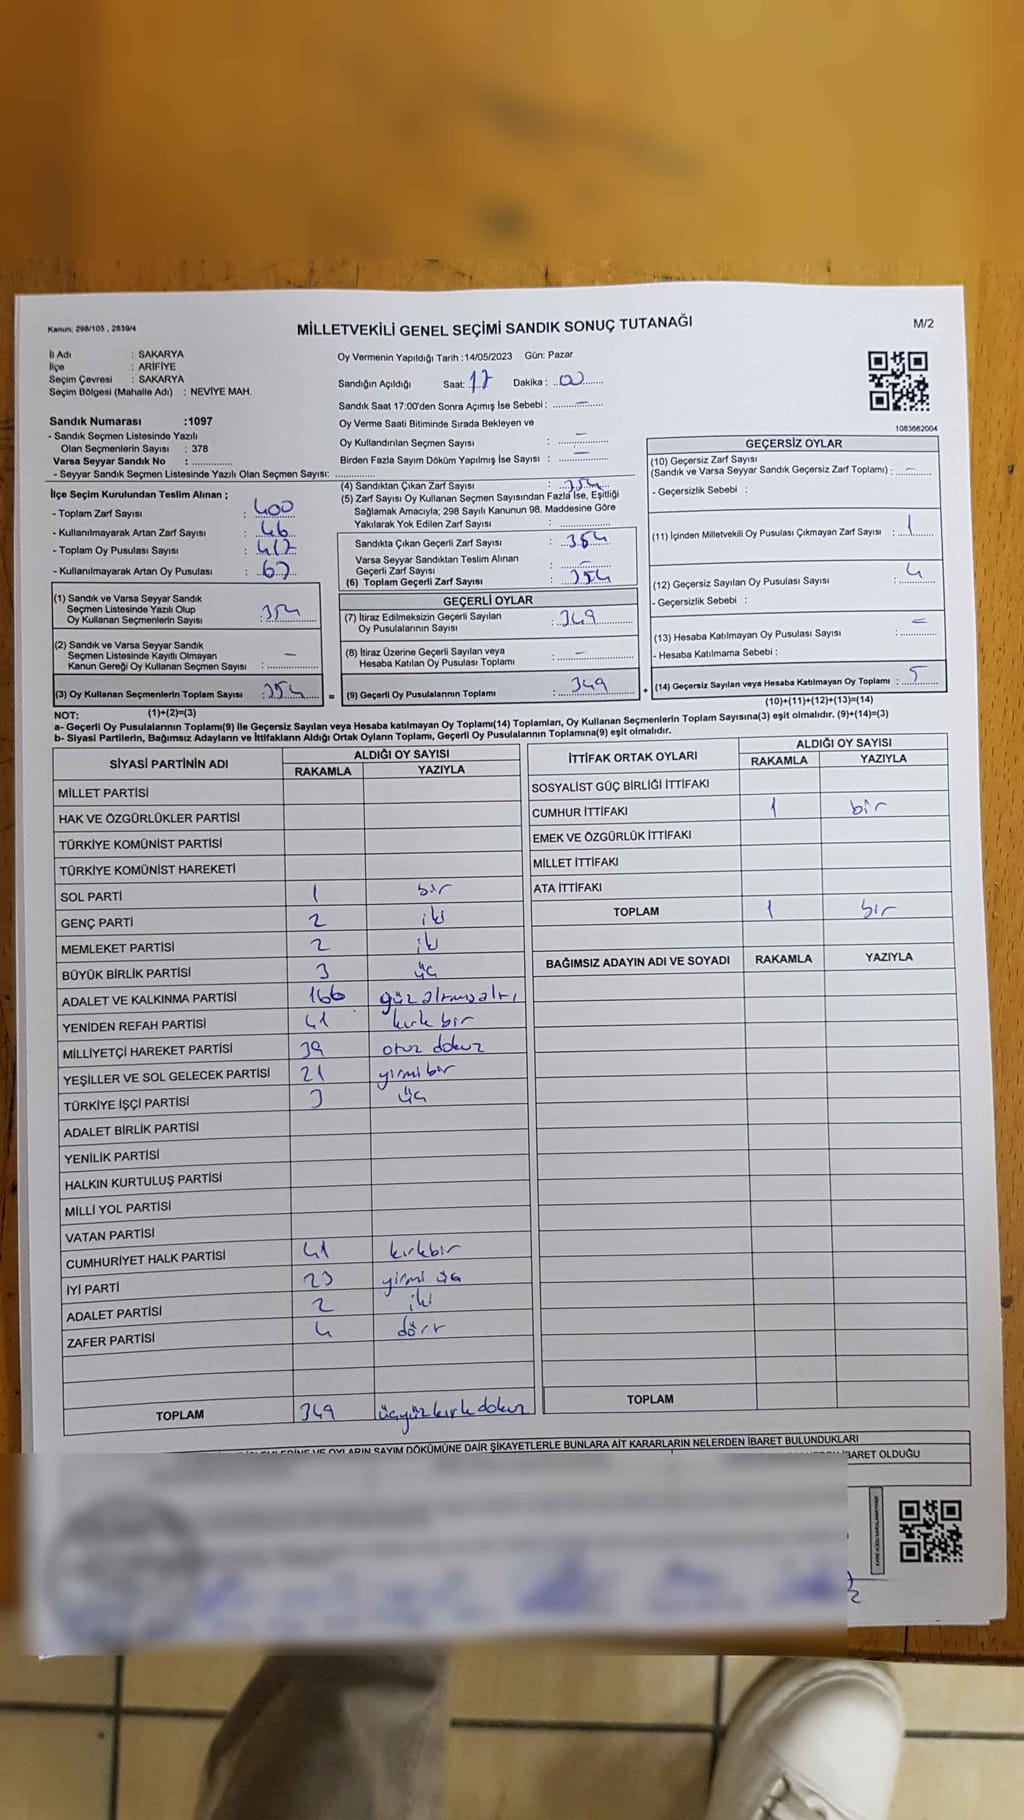 Kanun; 298/105 , 2839/4
MİLLETVEKİLİ GENEL SEÇİMİ SANDIK SONUÇ TUTANAĞI
M/2
İl Adı : SAKARYA
İlçe : ARİFİYE
Seçim Çevresi : SAKARYA
Seçim Bölgesi (Mahalle Adı) : NEVİYE MAH.
Oy Vermenin Yapıldığı Tarih :14/05/2023 Gün: Pazar
Sandığın Açıldığı Saat: 17 Dakika: 00
Sandık Saat 17:00'den Sonra Açılmış İse Sebebi : —
Oy Verme Saati Bitiminde Sırada Bekleyen ve
Oy Kullandırılan Seçmen Sayısı : —
Birden Fazla Sayım Döküm Yapılmış İse Sayısı : —
1083662004
Sandık Numarası :1097
- Sandık Seçmen Listesinde Yazılı
Olan Seçmenlerin Sayısı : 378
Varsa Seyyar Sandık No :
- Seyyar Sandık Seçmen Listesinde Yazılı Olan Seçmen Sayısı:
İlçe Seçim Kurulundan Teslim Alınan ;
- Toplam Zarf Sayısı : 400
- Kullanılmayarak Artan Zarf Sayısı : 46
- Toplam Oy Pusulası Sayısı : 417
- Kullanılmayarak Artan Oy Pusulası : 63
(1) Sandık ve Varsa Seyyar Sandık
Seçmen Listesinde Yazılı Olup
Oy Kullanan Seçmenlerin Sayısı : 354
(2) Sandık ve Varsa Seyyar Sandık
Seçmen Listesinde Kayıtlı Olmayan
Kanun Gereği Oy Kullanan Seçmen Sayısı : —
(3) Oy Kullanan Seçmenlerin Toplam Sayısı : 354
(1)+(2)=(3)
(4) Sandıktan Çıkan Zarf Sayısı : 354
(5) Zarf Sayısı Oy Kullanan Seçmen Sayısından Fazla İse, Eşitliği
Sağlamak Amacıyla; 298 Sayılı Kanunun 98. Maddesine Göre
Yakılarak Yok Edilen Zarf Sayısı :
Sandıkta Çıkan Geçerli Zarf Sayısı : 354
Varsa Seyyar Sandıktan Teslim Alınan
Geçerli Zarf Sayısı : —
(6) Toplam Geçerli Zarf Sayısı : 354
GEÇERLİ OYLAR
(7) İtiraz Edilmeksizin Geçerli Sayılan
Oy Pusulalarının Sayısı : 349
(8) İtiraz Üzerine Geçerli Sayılan veya
Hesaba Katılan Oy Pusulası Toplamı : —
= (9) Geçerli Oy Pusulalarının Toplamı : 349
GEÇERSİZ OYLAR
(10) Geçersiz Zarf Sayısı
(Sandık ve Varsa Seyyar Sandık Geçersiz Zarf Toplamı) : —
- Geçersizlik Sebebi :
(11) İçinden Milletvekili Oy Pusulası Çıkmayan Zarf Sayısı : 1
(12) Geçersiz Sayılan Oy Pusulası Sayısı : 4
- Geçersizlik Sebebi :
(13) Hesaba Katılmayan Oy Pusulası Sayısı : =
- Hesaba Katılmama Sebebi :
+ (14) Geçersiz Sayılan veya Hesaba Katılmayan Oy Toplamı : 5
(10)+(11)+(12)+(13)=(14)
NOT:
a- Geçerli Oy Pusulalarının Toplamı(9) ile Geçersiz Sayılan veya Hesaba katılmayan Oy Toplamı(14) Toplamları, Oy Kullanan Seçmenlerin Toplam Sayısına(3) eşit olmalıdır. (9)+(14)=(3)
b- Siyasi Partilerin, Bağımsız Adayların ve İttifakların Aldığı Ortak Oyların Toplamı, Geçerli Oy Pusulalarının Toplamına(9) eşit olmalıdır.
SİYASİ PARTİNİN ADI ALDIĞI OY SAYISI
RAKAMLA YAZIYLA
MİLLET PARTİSİ
HAK VE ÖZGÜRLÜKLER PARTİSİ
TÜRKİYE KOMÜNİST PARTİSİ
TÜRKİYE KOMÜNİST HAREKETİ
SOL PARTİ 1 bir
GENÇ PARTİ 2 iki
MEMLEKET PARTİSİ 2 iki
BÜYÜK BİRLİK PARTİSİ 3 üç
ADALET VE KALKINMA PARTİSİ 166 yüzaltmışaltı
YENİDEN REFAH PARTİSİ 41 kırk bir
MİLLİYETÇİ HAREKET PARTİSİ 39 otuz dokuz
YEŞİLLER VE SOL GELECEK PARTİSİ 21 yirmi bir
TÜRKİYE İŞÇİ PARTİSİ 3 üç
ADALET BİRLİK PARTİSİ
YENİLİK PARTİSİ
HALKIN KURTULUŞ PARTİSİ
MİLLİ YOL PARTİSİ
VATAN PARTİSİ
CUMHURİYET HALK PARTİSİ 41 kırkbir
İYİ PARTİ 23 yirmi üç
ADALET PARTİSİ 2 iki
ZAFER PARTİSİ 4 dört
TOPLAM 349 üçyüzkırkdokuz
İTTİFAK ORTAK OYLARI ALDIĞI OY SAYISI
RAKAMLA YAZIYLA
SOSYALİST GÜÇ BİRLİĞİ İTTİFAKI
CUMHUR İTTİFAKI 1 bir
EMEK VE ÖZGÜRLÜK İTTİFAKI
MİLLET İTTİFAKI
ATA İTTİFAKI
TOPLAM 1 bir
BAĞIMSIZ ADAYIN ADI VE SOYADI RAKAMLA YAZIYLA
TOPLAM
OYLARIN SAYIM DÖKÜMÜNE DAİR ŞİKAYETLERLE BUNLARA AİT KARARLARIN NELERDEN İBARET BULUNDUKLARI
İBARET OLDUĞU